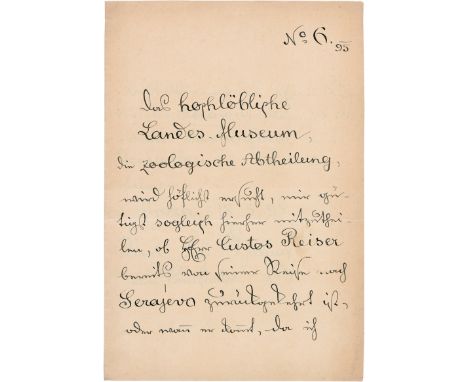 No 6./95
Das hochlöbliche
Landes-Museum,
die zoologische Abtheilung,
wird höflichst ersucht, mir gü-
tigst sogleich hierher mitzuthei-
len, ob Herr Custos Reiser
bereits von seiner Reise nach
Serajevo zurückgekehrt ist,
oder wann er kommt, da ich